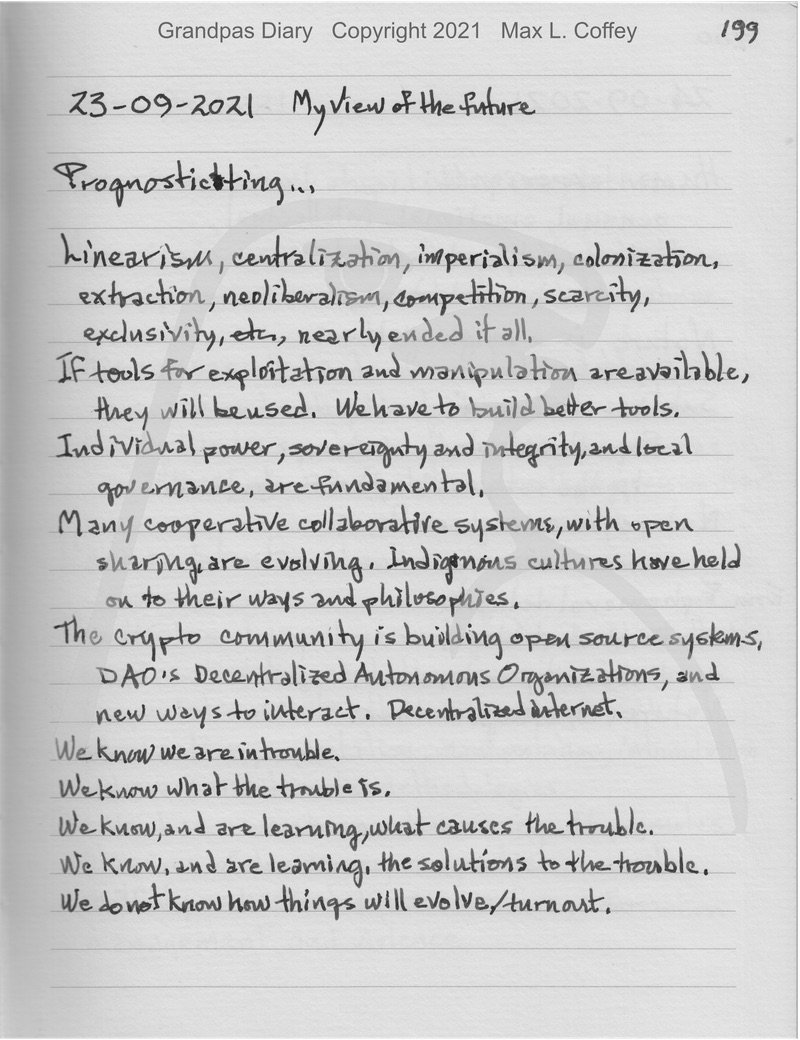 Grandpas Diary Copyright 2021 Max L. Coffey
199
23-09-2021 My View of the future
Prognosticating...
Linearism, centralization, imperialism, colonization,
extraction, neoliberalism, competition, scarcity,
exclusivity, etc., nearly ended it all.
If tools for exploitation and manipulation are available,
they will be used. We have to build better tools.
Individual power, sovereignty and integrity, and local
governance, are fundamental.
Many cooperative collaborative systems, with open
sharing, are evolving. Indigenous cultures have held
on to their ways and philosophies.
The crypto community is building open source systems,
DAO's Decentralized Autonomous Organizations, and
new ways to interact. Decentralized internet.
We know we are in trouble.
We know what the trouble is.
We know, and are learning, what causes the trouble.
We know, and are learning, the solutions to the trouble.
We do not know how things will evolve/turn out.